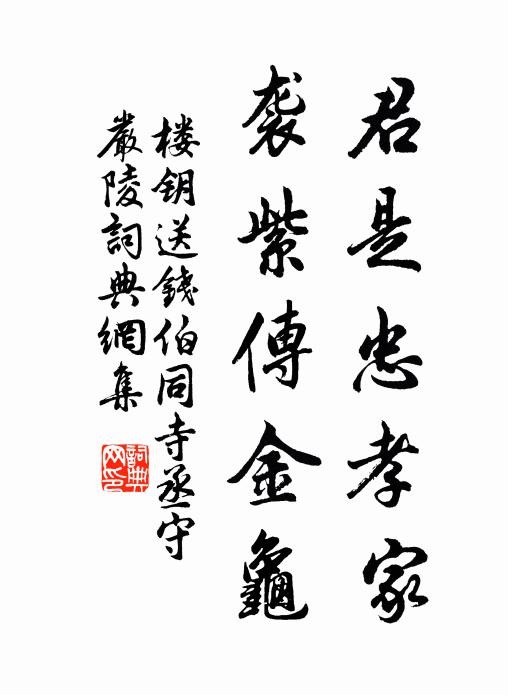 君是忠孝家
袭紫傳金龜
楼钥送錢伯同寺丞守
嚴陵詞典網集
詞典网印